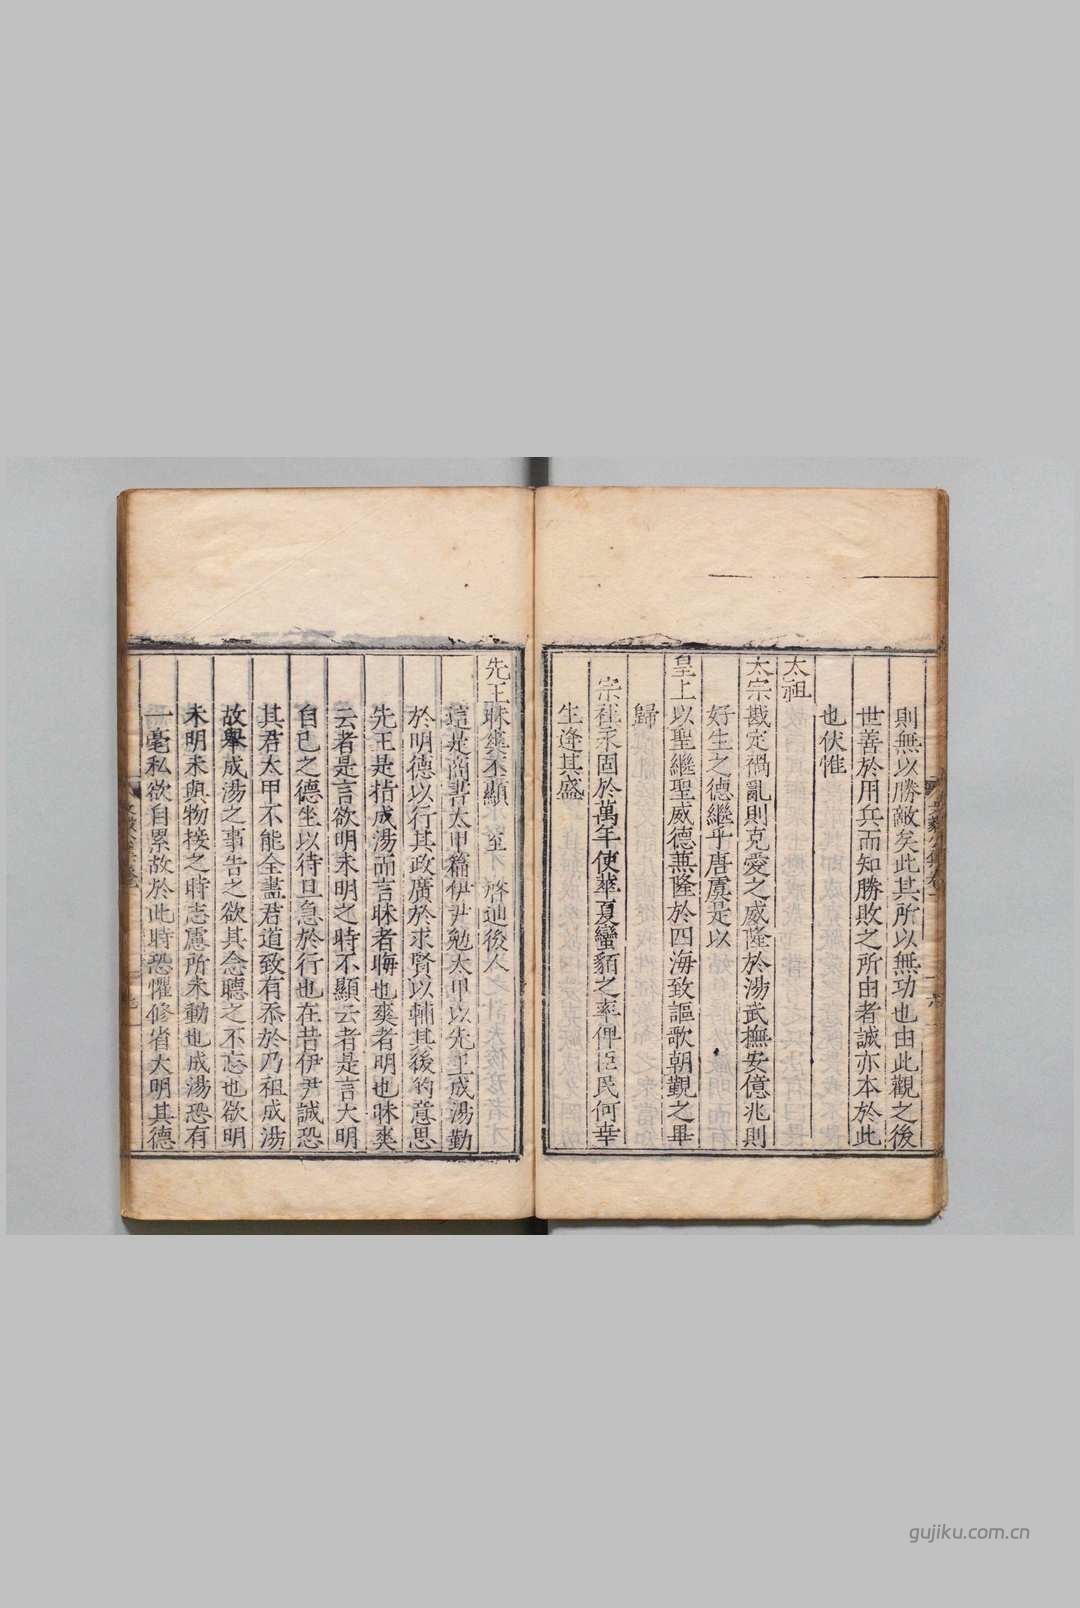 則無以勝敵矣此其所以無功也由此觀之後
世善於用兵而知勝敗之所由者誠亦本於此
也伏惟
太祖
太宗戡定禍亂則克愛之威隆於湯武撫安億兆則
好生之德繼乎唐虞是以
皇上以聖繼聖威德兼隆於四海致謳歌朝覲之畢
歸
宗社永固於萬年使華夏蠻貊之率俾臣民何幸
生逢其盛
先王昧爽丕顯至啓迪後人
這是商書太甲篇伊尹勉太甲以先王成湯勤
於明德以行其政廣於求賢以輔其後的意思
先王是指成湯而言昧者晦也爽者明也昧爽
云者是言欲明未明之時不顯云者是言大明
自己之德坐以待旦急於行也在昔伊尹誠恐
其君太甲不能全盡君道致有忝於乃祖成湯
故舉成湯之事告之欲其念聽之不忘也欲明
未明未與物接之時志慮所未動也成湯恐有
一毫私欲自累故於此時恐懼修省大明其德
gujiku.com.cn